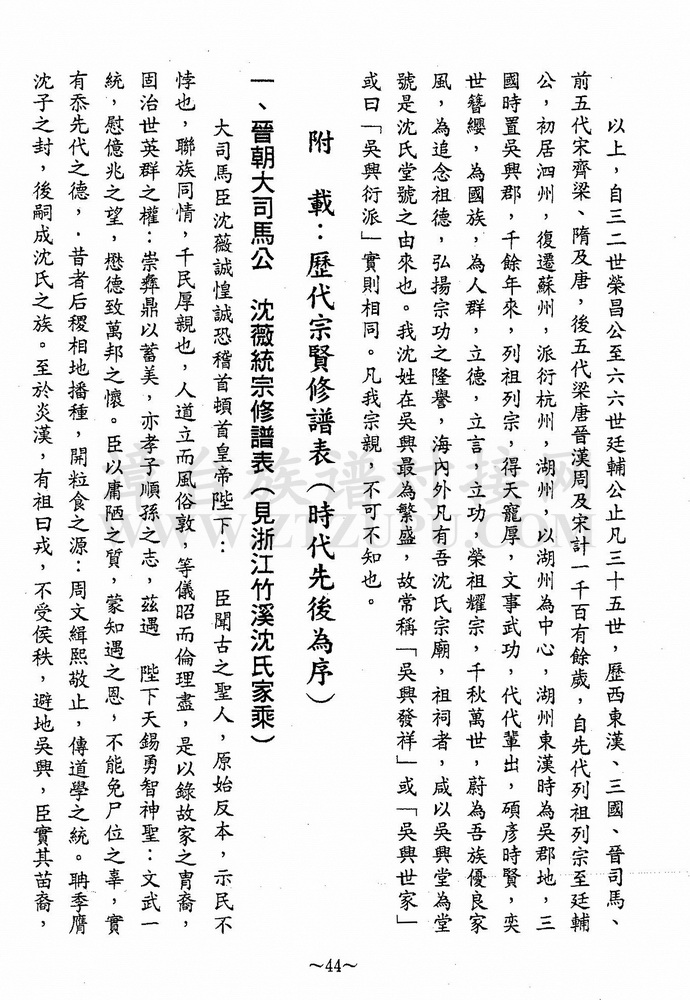 以上，自三二世榮昌公至六六世廷輔公止凡三十五世，歷西東漢、三國、晉司馬、
前五代宋齊梁、隋及唐，後五代梁唐晉漢周及宋計一千百有餘歲，自先代列祖列宗至廷輔
公，初居泗州，復遷蘇州，派衍杭州，湖州，以湖州為中心，湖州東漢時為吳郡地，三
國時置吳興郡，千餘年來，列祖列宗，得天寵厚，文事武功，代代輩出，碩彥時賢，奕
世簪纓，為國族，為人群，立德，立言，立功，榮祖耀宗，千秋萬世，蔚為吾族優良家
風，為追念祖德，弘揚宗功之隆譽，海內外凡有吾沈氏宗廟，祖祠者，咸以吳興堂為堂
號是沈氏堂號之由來也。我沈姓在吳興最為繁盛，故常稱「吳興發祥」或「吳興世家」
或曰「吳興衍派」實則相同。凡我宗親，不可不知也。
附　載：歷代宗賢修譜表（時代先後為序）
一、晉朝大司馬公　沈薇統宗修譜表（見浙江竹溪沈氏家乘）
大司馬臣沈薇誠惶誠恐稽首頓首皇帝陛下：　臣聞古之聖人，原始反本，示民不
悖也，聯族同情，千民厚親也，人道立而風俗敦，等儀昭而倫理盡，是以錄故家之胄裔，
固治世英群之權：崇彝鼎以蓄美，亦孝子順孫之志，茲遇　陛下天錫勇智神聖：文武一
統，慰億兆之望，懋德致萬邦之懷。臣以庸陋之質，蒙知遇之恩，不能免尸位之辜，實
有忝先代之德，．昔者后稷相地播種，開粒食之源：周文緝熙敬止，傳道學之統。聃季膺
沈子之封，後嗣成沈氏之族。至於炎漢，有祖曰戎，不受侯秩，避地吳興，臣實其苗裔，
～44～
樟台族谱对接网
WWW.ZTZUPU.COM